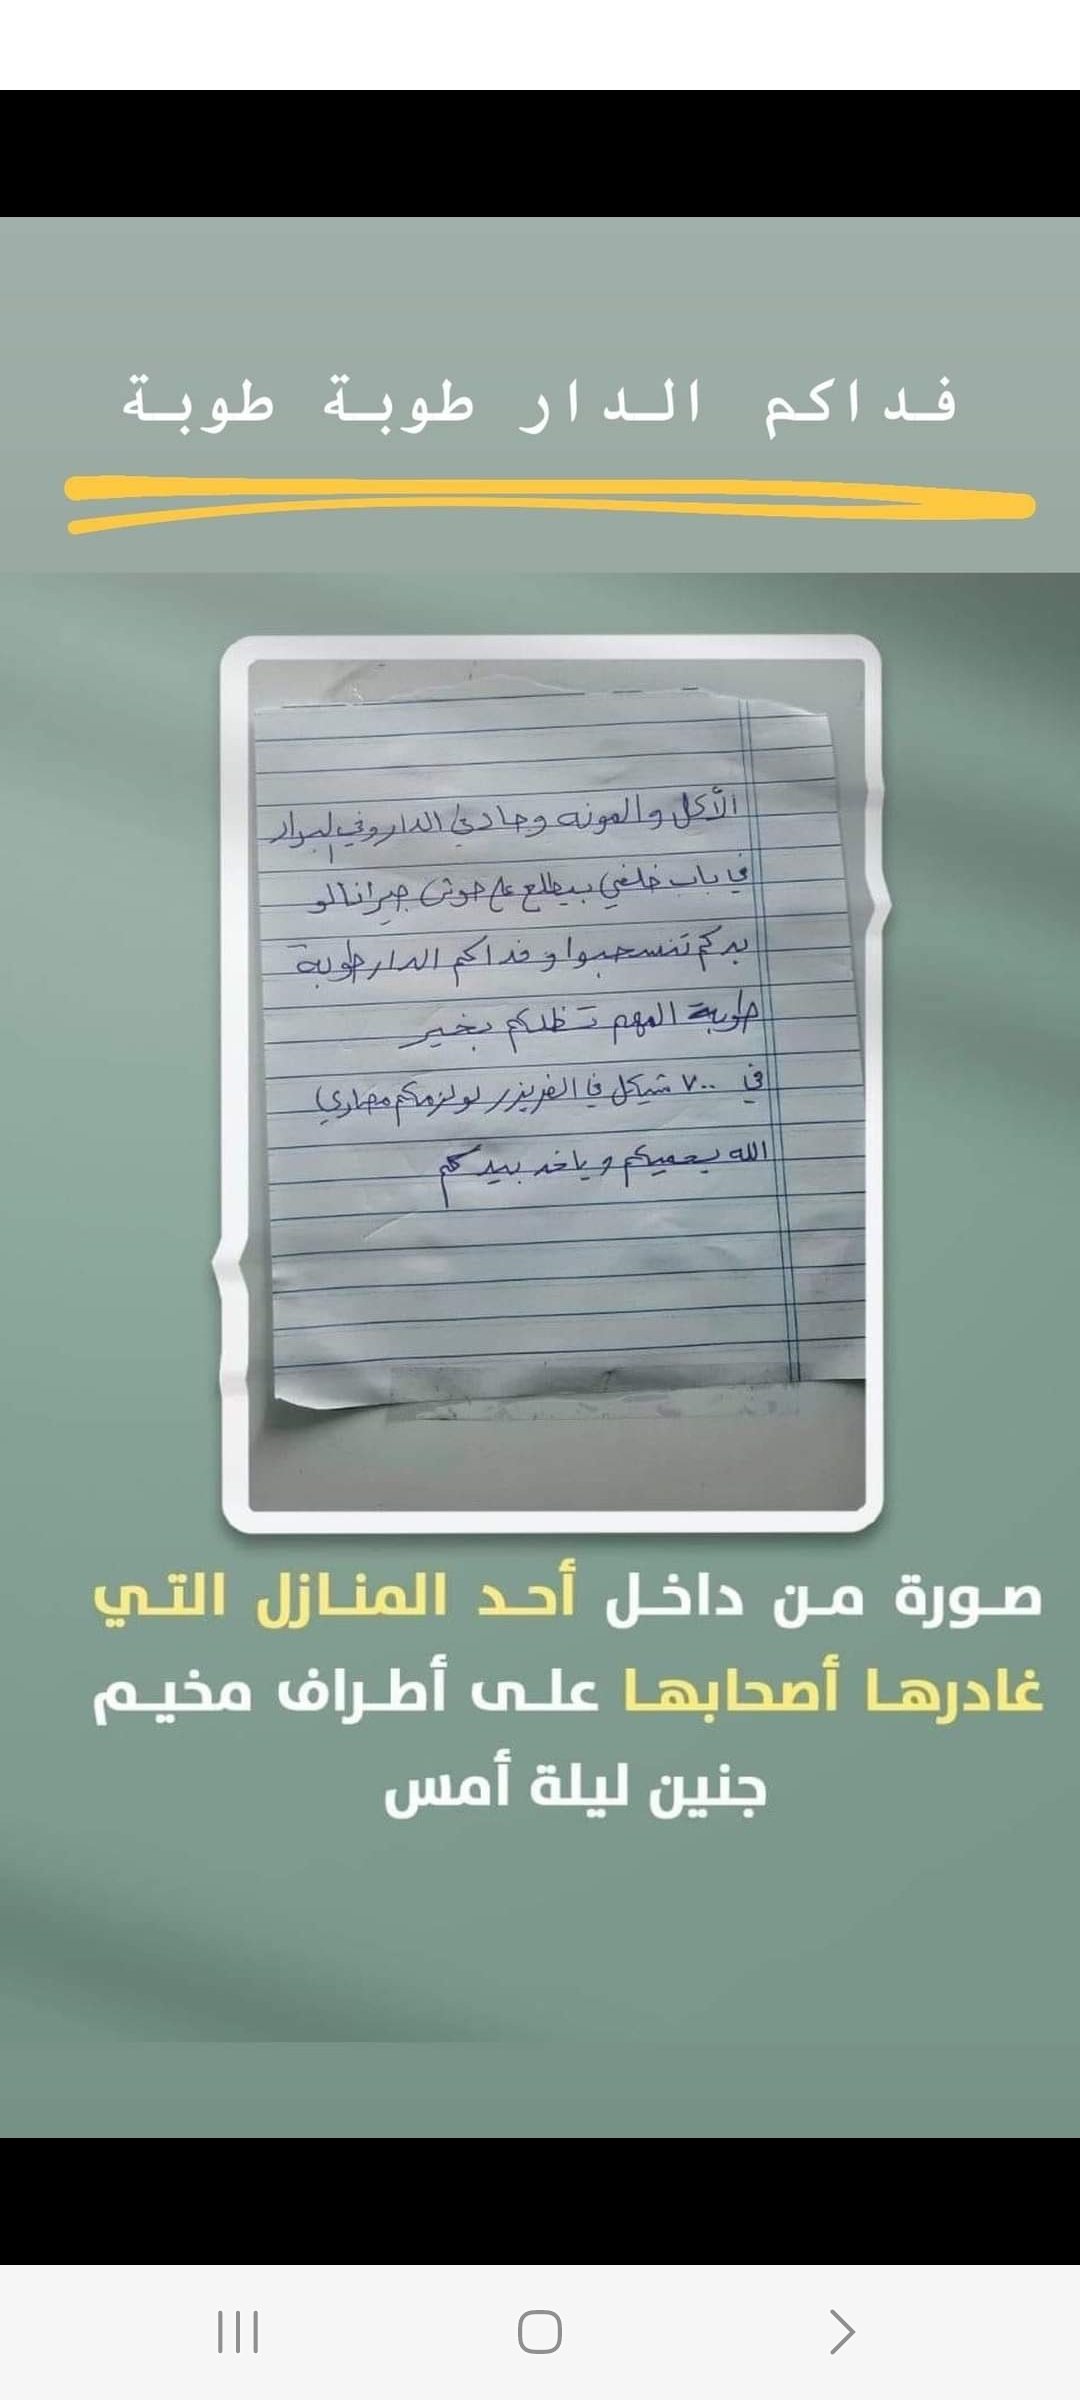 فداكم الدار طوبة طوبة
الأكل والمونه وجاد في الدار وفي البراد
في باب خلفي بيطلع ع حوش جيرانا لو
بدكم تنسحبوا و فداكم الدار طوبة
طوبة المهم تظلكم بخير
في ٧٠٠ شيكل في الفريزر لو لزمكم مصاري
الله يحميكم و ياخد بيدكم
صورة من داخل أحد المنازل التي
غادرها أصحابها على أطراف مخيم
جنين ليلة أمس